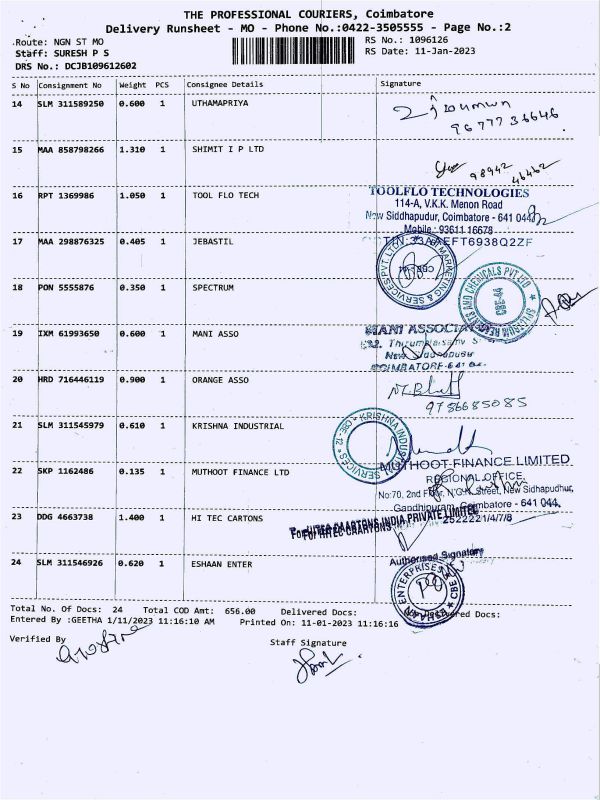 THE PROFESSIONAL COURIERS, Coimbatore
Delivery Runsheet - MO - Phone No.:0422-3505555 - Page No.:2
Route: NGN ST MO
RS No.: 1096126
Staff: SURESH P S
RS Date: 11-Jan-2023
DRS No.: DCJB109612602
S No Consignment No Weight PCS Consignee Details Signature
14 SLM 311589250 0.600 1 UTHAMAPRIYA
96777 36646
15 MAA 858798266 1.310 1 SHIMIT I P LTD
98942 46462
16 RPT 1369986 1.050 1 TOOL FLO TECH
TOOLFLO TECHNOLOGIES
114-A, V.K.K. Menon Road
New Siddhapudur, Coimbatore - 641 044
Mobile: 93611 16678
17 MAA 298876325 0.405 1 JEBASTIL
18 PON 5555876 0.350 1 SPECTRUM
CBE-44
19 IXM 61993650 0.600 1 MANI ASSO
MANI ASSOCIA
New Siddhapudur
COIMBATORE
20 HRD 716446119 0.900 1 ORANGE ASSO
9786685085
21 SLM 311545979 0.610 1 KRISHNA INDUSTRIAL
KRISHNA INDUSTRIAL SERVICES CBE-12
22 SKP 1162486 0.135 1 MUTHOOT FINANCE LTD
MUTHOOT FINANCE LIMITED
REGIONAL OFFICE
No:70, 2nd Floor, N.G.N. Street, New Sidhapudhur,
Gandhipuram, Coimbatore - 641 044.
2522221/4/7/8
23 DDG 4663738 1.400 1 HI TEC CARTONS
For HITEC CAARTONS INDIA PRIVATE LIMITED
Authorised Signatory
24 SLM 311546926 0.620 1 ESHAAN ENTER
ESHAAN ENTERPRISES CBE
Total No. Of Docs: 24 Total COD Amt: 656.00 Delivered Docs: Docs:
Entered By :GEETHA 1/11/2023 11:16:10 AM Printed On: 11-01-2023 11:16:16
Verified By
Staff Signature